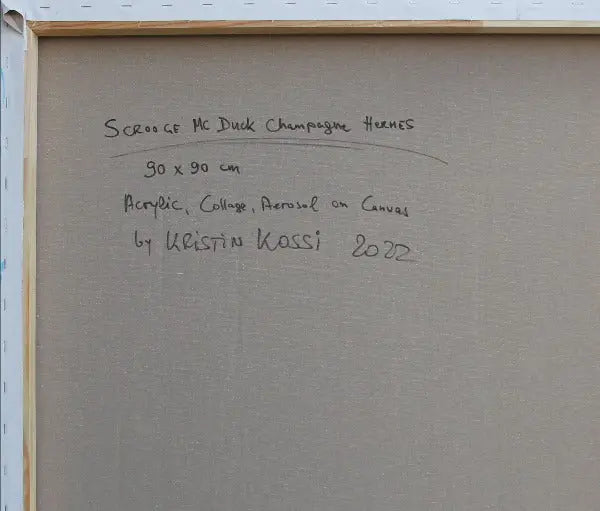 SCROOGE MC Duck Champagne HERMES
90 x 90 cm
Acrylic, Collage, Aerosol on Canvas
by KRiSTiN KOSSi 2022